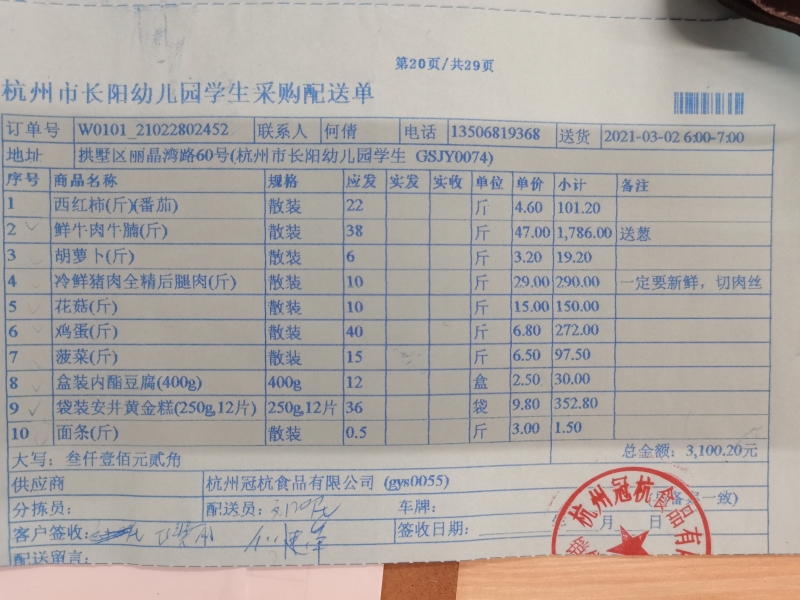 第20页/共29页
杭州市长阳幼儿园学生采购配送单
订单号 W0101_21022802452 联系人 何倩 电话 13506819368 送货 2021-03-02 6:00-7:00
地址 拱墅区丽晶湾路60号(杭州市长阳幼儿园学生 GSJY0074)
序号 商品名称 规格 应发 实发 实收 单位 单价 小计 备注
1 西红柿(斤)(番茄) 散装 22 斤 4.60 101.20
2 鲜牛肉牛腩(斤) 散装 38 斤 47.00 1,786.00 送葱
3 胡萝卜(斤) 散装 6 斤 3.20 19.20
4 冷鲜猪肉全精后腿肉(斤) 散装 10 斤 29.00 290.00 一定要新鲜，切肉丝
5 花菇(斤) 散装 10 斤 15.00 150.00
6 鸡蛋(斤) 散装 40 斤 6.80 272.00
7 菠菜(斤) 散装 15 斤 6.50 97.50
8 盒装内酯豆腐(400g) 400g 12 盒 2.50 30.00
9 袋装安井黄金糕(250g,12片) 250g,12片 36 袋 9.80 352.80
10 面条(斤) 散装 0.5 斤 3.00 1.50
大写: 叁仟壹佰元贰角 总金额: 3,100.20元
供应商 杭州冠杭食品有限公司 (gys0055)
分拣员: 配送员: 车牌: 一致)
客户签收: 签收日期: 月 日
配送留言:
杭州冠杭食品有